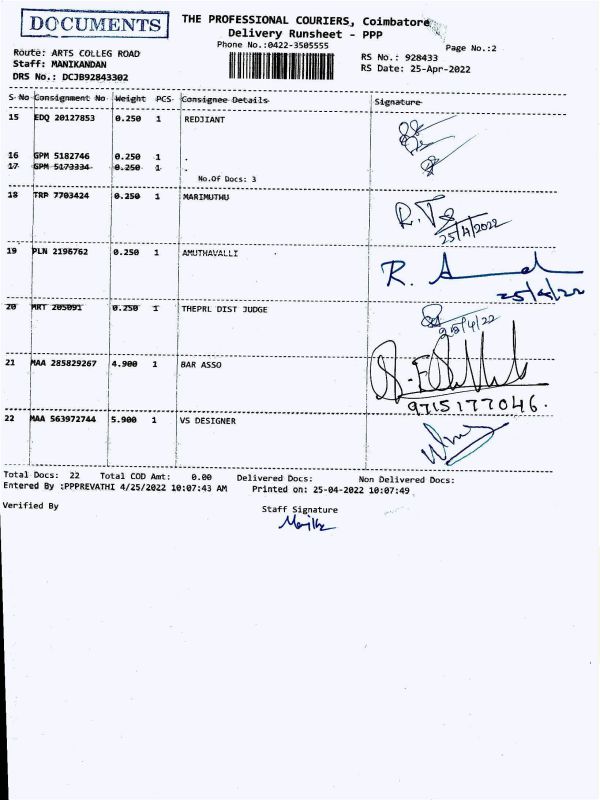 DOCUMENTS
THE PROFESSIONAL COURIERS, Coimbatore
Delivery Runsheet - PPP
Phone No.:0422-3505555
Page No.:2
Route: ARTS COLLEG ROAD
Staff: MANIKANDAN
DRS No.: DCJB92843302
RS No.: 928433
RS Date: 25-Apr-2022
S No Consignment No Weight PCS Consignee Details Signature
15 EDQ 20127853 0.250 1 REDJIANT
16 GPM 5182746 0.250 1 .
17 GPM 5173334 0.250 1 .
No.Of Docs: 3
18 TRP 7703424 0.250 1 MARIMUTHU
25/4/2022
19 PLN 2196762 0.250 1 AMUTHAVALLI
R.
25/4/22
20 MRT 205091 0.250 1 THEPRL DIST JUDGE
25/4/22
21 MAA 285829267 4.900 1 BAR ASSO
9715177046.
22 MAA 563972744 5.900 1 VS DESIGNER
Total Docs: 22 Total COD Amt: 0.00 Delivered Docs: Non Delivered Docs:
Entered By :PPPREVATHI 4/25/2022 10:07:43 AM Printed on: 25-04-2022 10:07:49
Verified By
Staff Signature